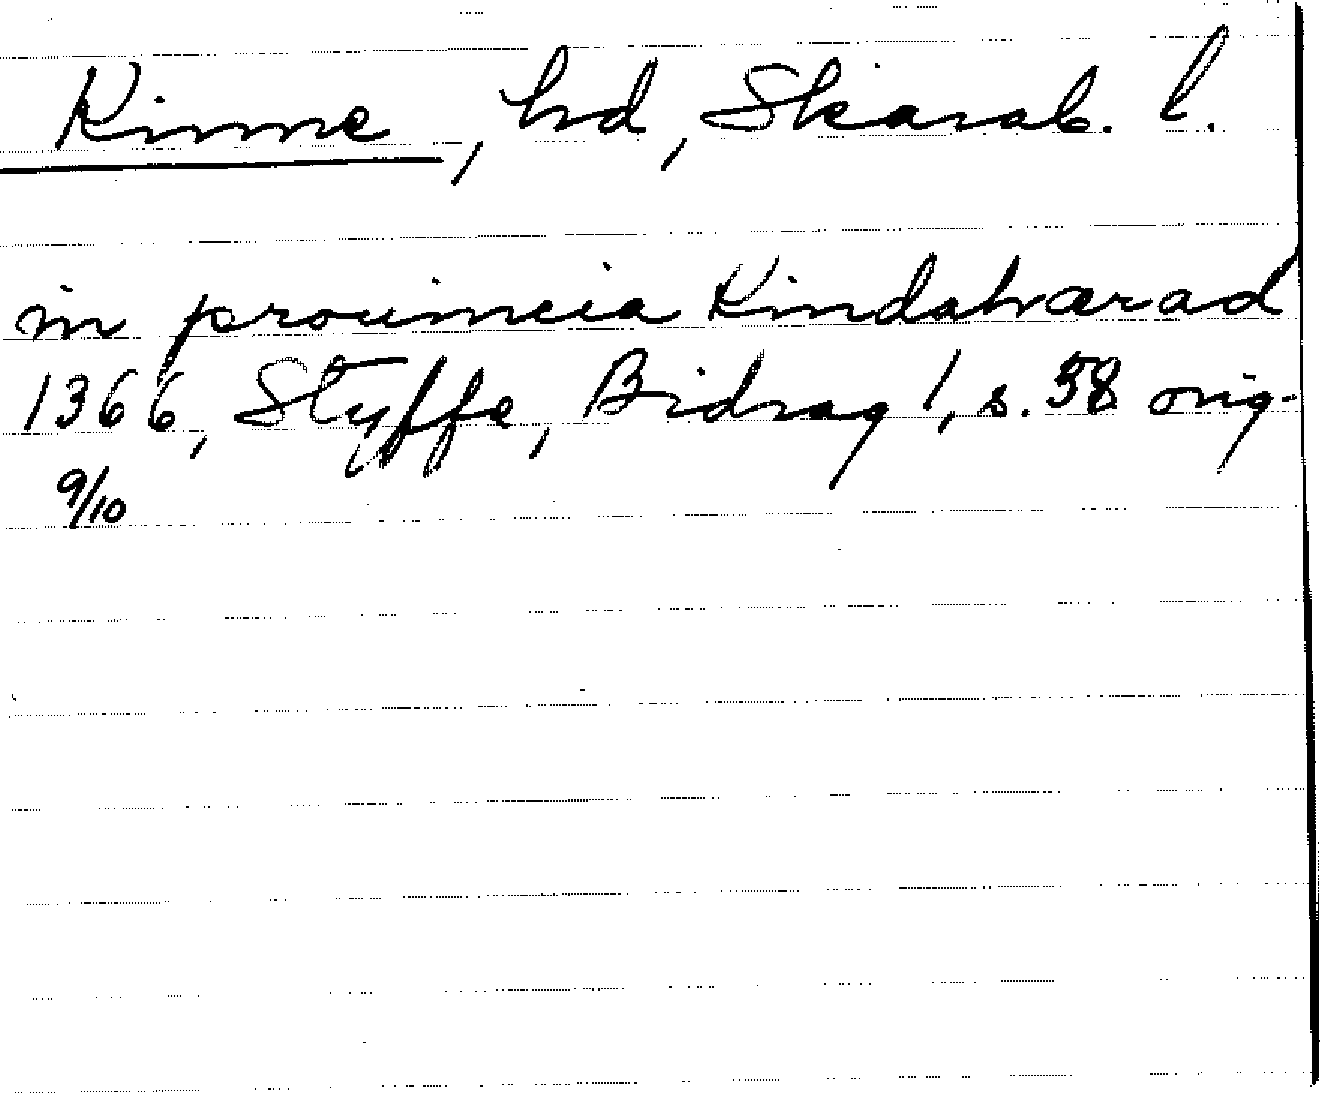 Kinne, hd, Skarab. l.
in provincia Kindahærad
1366, Styffe, Bidrag 1, s. 58 orig.
9/10